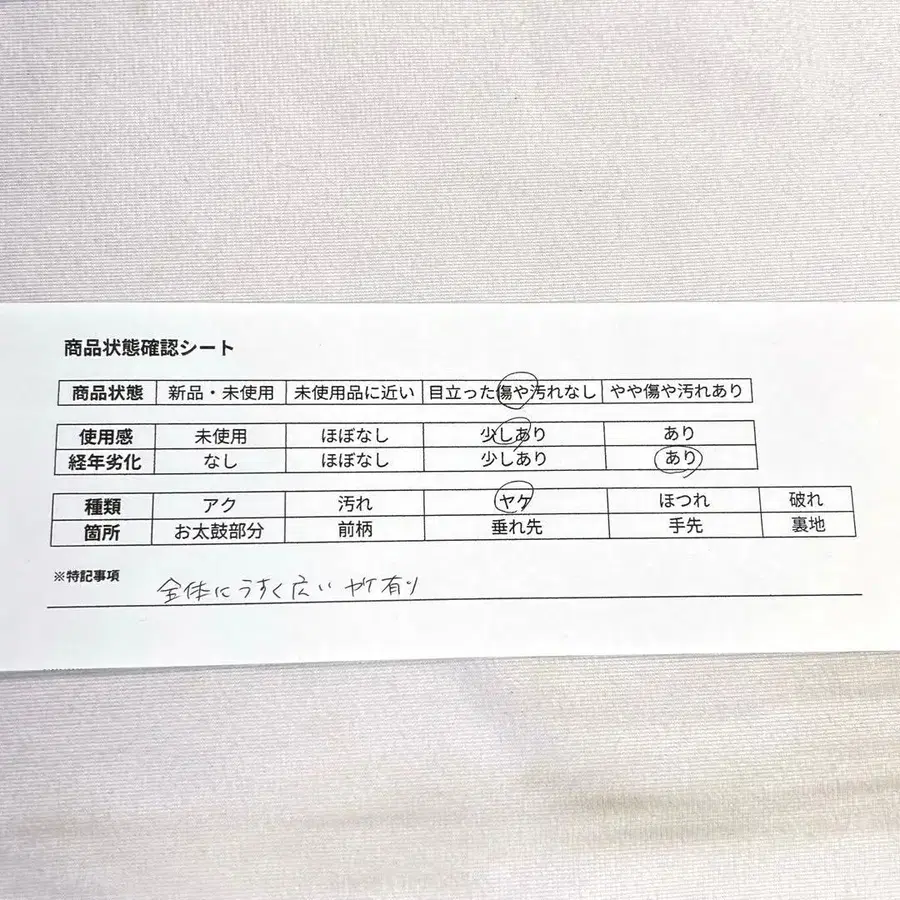 商品状態確認シート
商品状態 新品・未使用 未使用品に近い 目立った傷や汚れなし やや傷や汚れあり
使用感 未使用 ほぼなし 少しあり あり
経年劣化 なし ほぼなし 少しあり あり
種類 アク 汚れ ヤケ ほつれ 破れ
箇所 お太鼓部分 前柄 垂れ先 手先 裏地
※特記事項 全体にうすく広い ヤケ有り